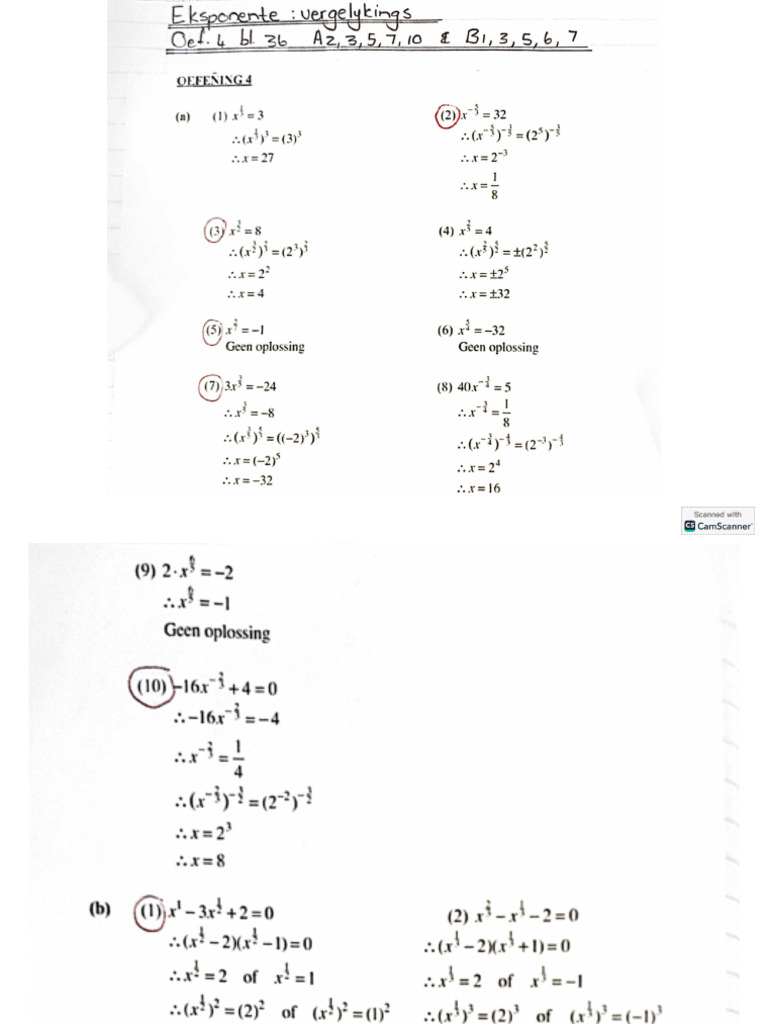 Eksponente : vergelykings
Oef. 4 bl. 36 A2, 3, 5, 7, 10 & B1, 3, 5, 6, 7
OEFENING 4
(a) (1) x^{1/3} = 3
∴(x^{1/3})^3 = (3)^3
∴x = 27
(2) x^{-5/3} = 32
∴(x^{-5/3})^{-3/5} = (2^5)^{-3/5}
∴x = 2^{-3}
∴x = 1/8
(3) x^{3/2} = 8
∴(x^{3/2})^{2/3} = (2^3)^{2/3}
∴x = 2^2
∴x = 4
(4) x^{2/5} = 4
∴(x^{2/5})^{5/2} = ±(2^2)^{5/2}
∴x = ±2^5
∴x = ±32
(5) = −1
Geen oplossing
(6) x^{5/4} = −32
Geen oplossing
(7) 3x^{3/5} = −24
∴x^{3/5} = −8
∴(x^{3/5})^{5/3} = ((−2)^3)^{5/3}
∴x = (−2)^5
∴x = −32
(8) 40x^{-3/4} = 5
∴x^{-3/4} = 1/8
∴(x^{-3/4})^{-4/3} = (2^{-3})^{-4/3}
∴x = 2^4
∴x = 16
Scanned with
CS CamScanner
(9) = −2
= −1
Geen oplossing
(10) −16x^{-2/3} + 4 = 0
∴−16x^{-2/3} = −4
∴x^{-2/3} = 1/4
∴(x^{-2/3})^{-3/2} = (2^{-2})^{-3/2}
∴x = 2^3
∴x = 8
(b) (1) x^1 − 3x^{1/2} + 2 = 0
∴(x^{1/2} − 2)(x^{1/2} − 1) = 0
∴x^{1/2} = 2 of x^{1/2} = 1
∴(x^{1/2})^2 = (2)^2 of (x^{1/2})^2 = (1)^2
(2) x^{2/3} − x^{1/3} − 2 = 0
∴(x^{1/3} − 2)(x^{1/3} + 1) = 0
∴x^{1/3} = 2 of x^{1/3} = −1
∴(x^{1/3})^3 = (2)^3 of (x^{1/3})^3 = (−1)^3